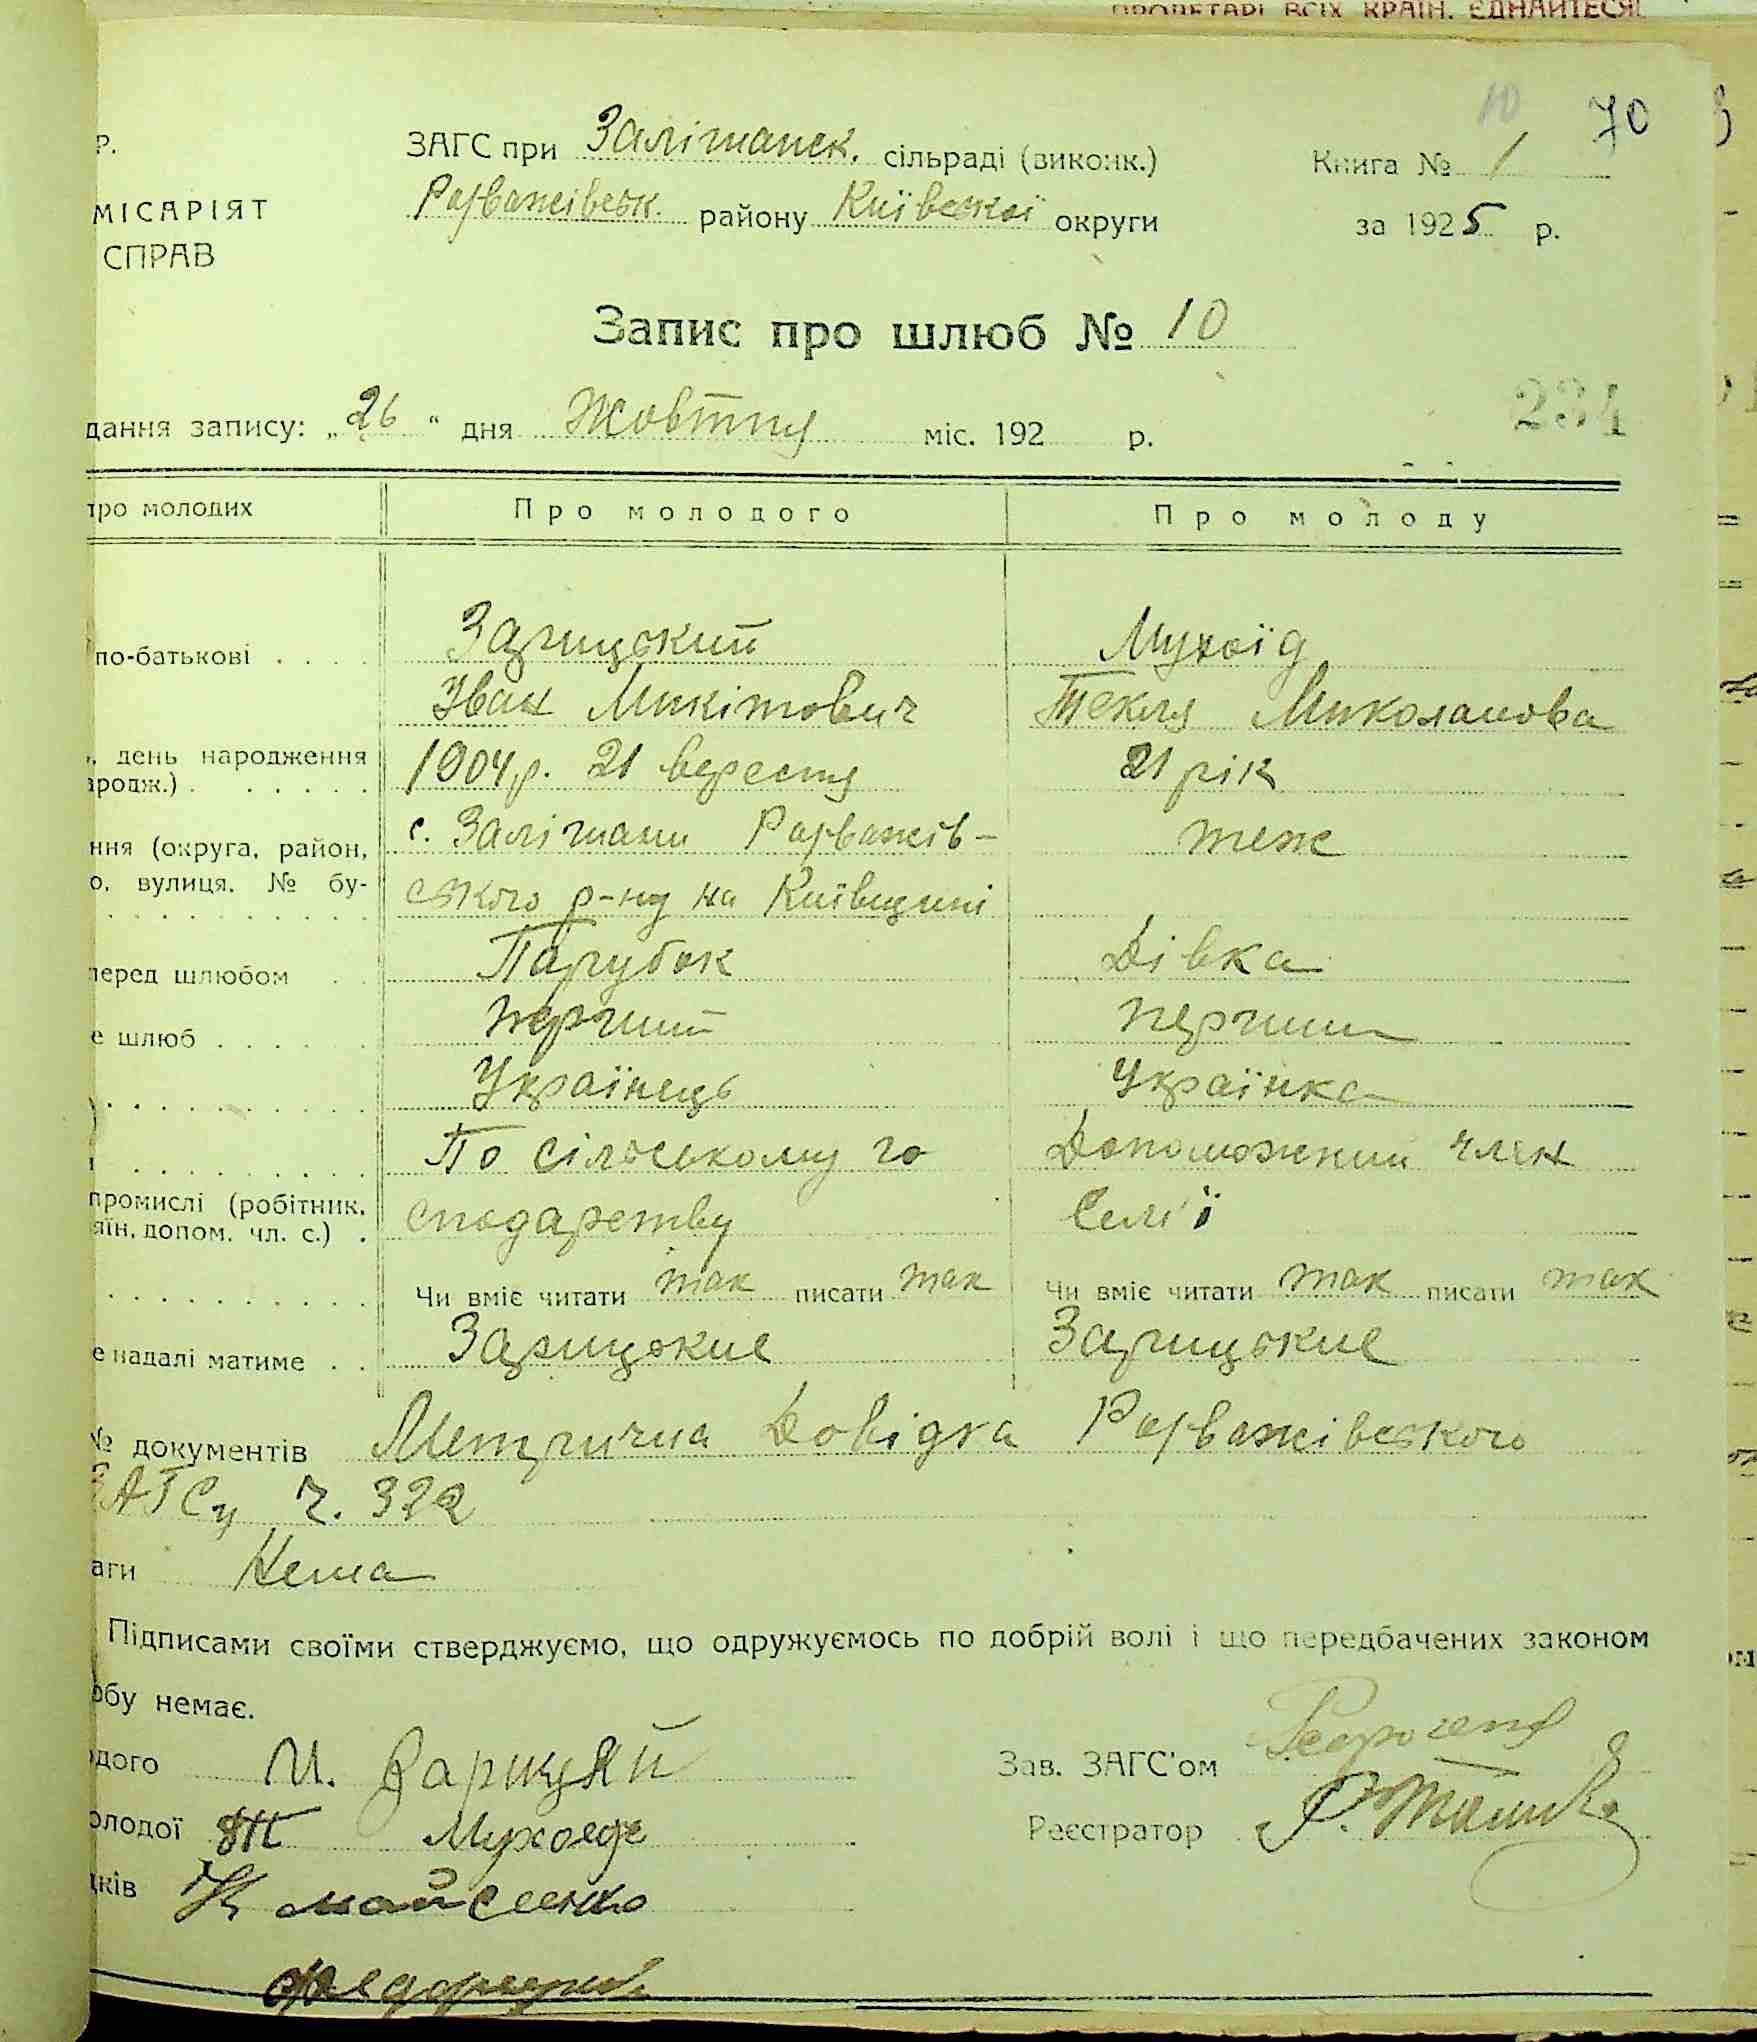 ПРОЛЕТАРІ ВСІХ КРАЇН, ЄДНАЙТЕСЯ!
10 70
Р. ЗАГС при Залішанск. сільраді (виконк.) Книга № 1
МІСАРІЯТ Розважівськ. району Київської округи за 1925 р.
СПРАВ
Запис про шлюб № 10
дання запису: „26“ дня Жовтня міс. 192 р. 234
про молодих Про молодого Про молоду
по-батькові . . . . Зарицький Мухоїд
Іван Микітович Текля Миколаїова
, день народження 1904 р. 21 вересня 21 рік
ародж.) . . . . . .
ння (округа, район, с. Залішани Розважів- теж
о, вулиця, № бу- ського р-ну на Київщині
перед шлюбом . . Парубок Дівка
е шлюб . . . . . . перший перший
Українець Українка
По сільському го Допоможний член
промислі (робітник, сподарству Сем'ї
яїн, допом. чл. с.) .
Чи вміє читати так писати так Чи вміє читати так писати так
е надалі матиме . . Зарицькие Зарицькие
№ документів Метрична Довідка Розважівського
ЗАГСу ч. 322
аги Нема
Підписами своїми стверджуємо, що одружуємось по добрій волі і що передбачених законом
обу немає.
одого И. Зарицкий Зав. ЗАГС'ом
олодої Мухоеде Реєстратор
дків Мойсеенко